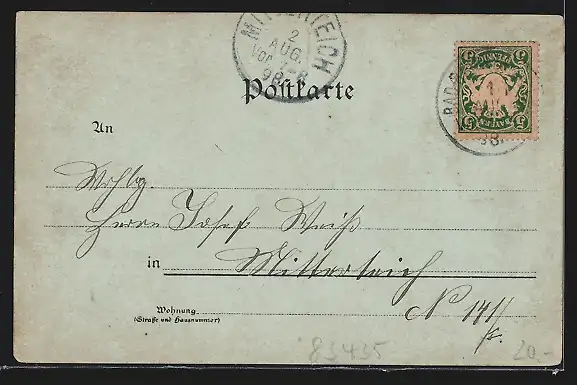 MITTERTEICH
2
AUG.
VOR. 7-8
98
BAYERN
5 5
Postkarte
An
Wohlg.
Herrn Josef Weiß
in Mitterteich
Wohnung
(Straße und Hausnummer)
N 141/
83435
20.-